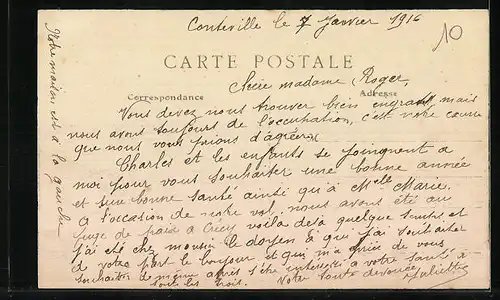 Conteville le 7 Janvier 1916
10
CARTE POSTALE
madame Roger,
Correspondance Adresse
Vous devez nous trouver bien engrats, mais
nous avons toujours de l'occupation, c'est notre
que nous vous prions d'agréer
Charles et les enfants se joingnent a
moi pour vous souhaiter une bonne année
et une bonne santé ainsi qu'à Melle Marie.
a l'occasion de notre vol, nous avons été au
juge de paix a Crécy voila déjà quelque temps et
j'ai été chez le doyen à qui j'ai souhaiter
de votre part le bonjour et qui ma prié de vous
souhaiter de même après s'être interressé a votre santé à
tout les trois. Votre toute devouée Juliette
Notre maison est à la gauche